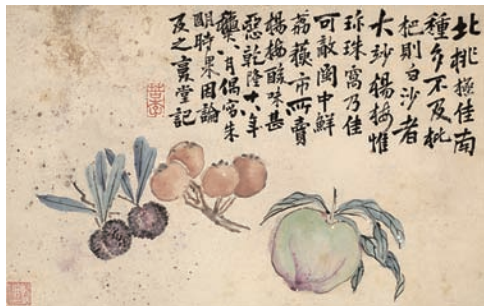 北桃極佳南
種多不及枇
杷則白沙者
大妙楊梅惟
珎珠窩乃佳
可敵閩中鮮
荔市所賣
楊梅酸味甚
惡乾隆十六年
八月偶寫朱
明時果因論
及之堂記
苦李